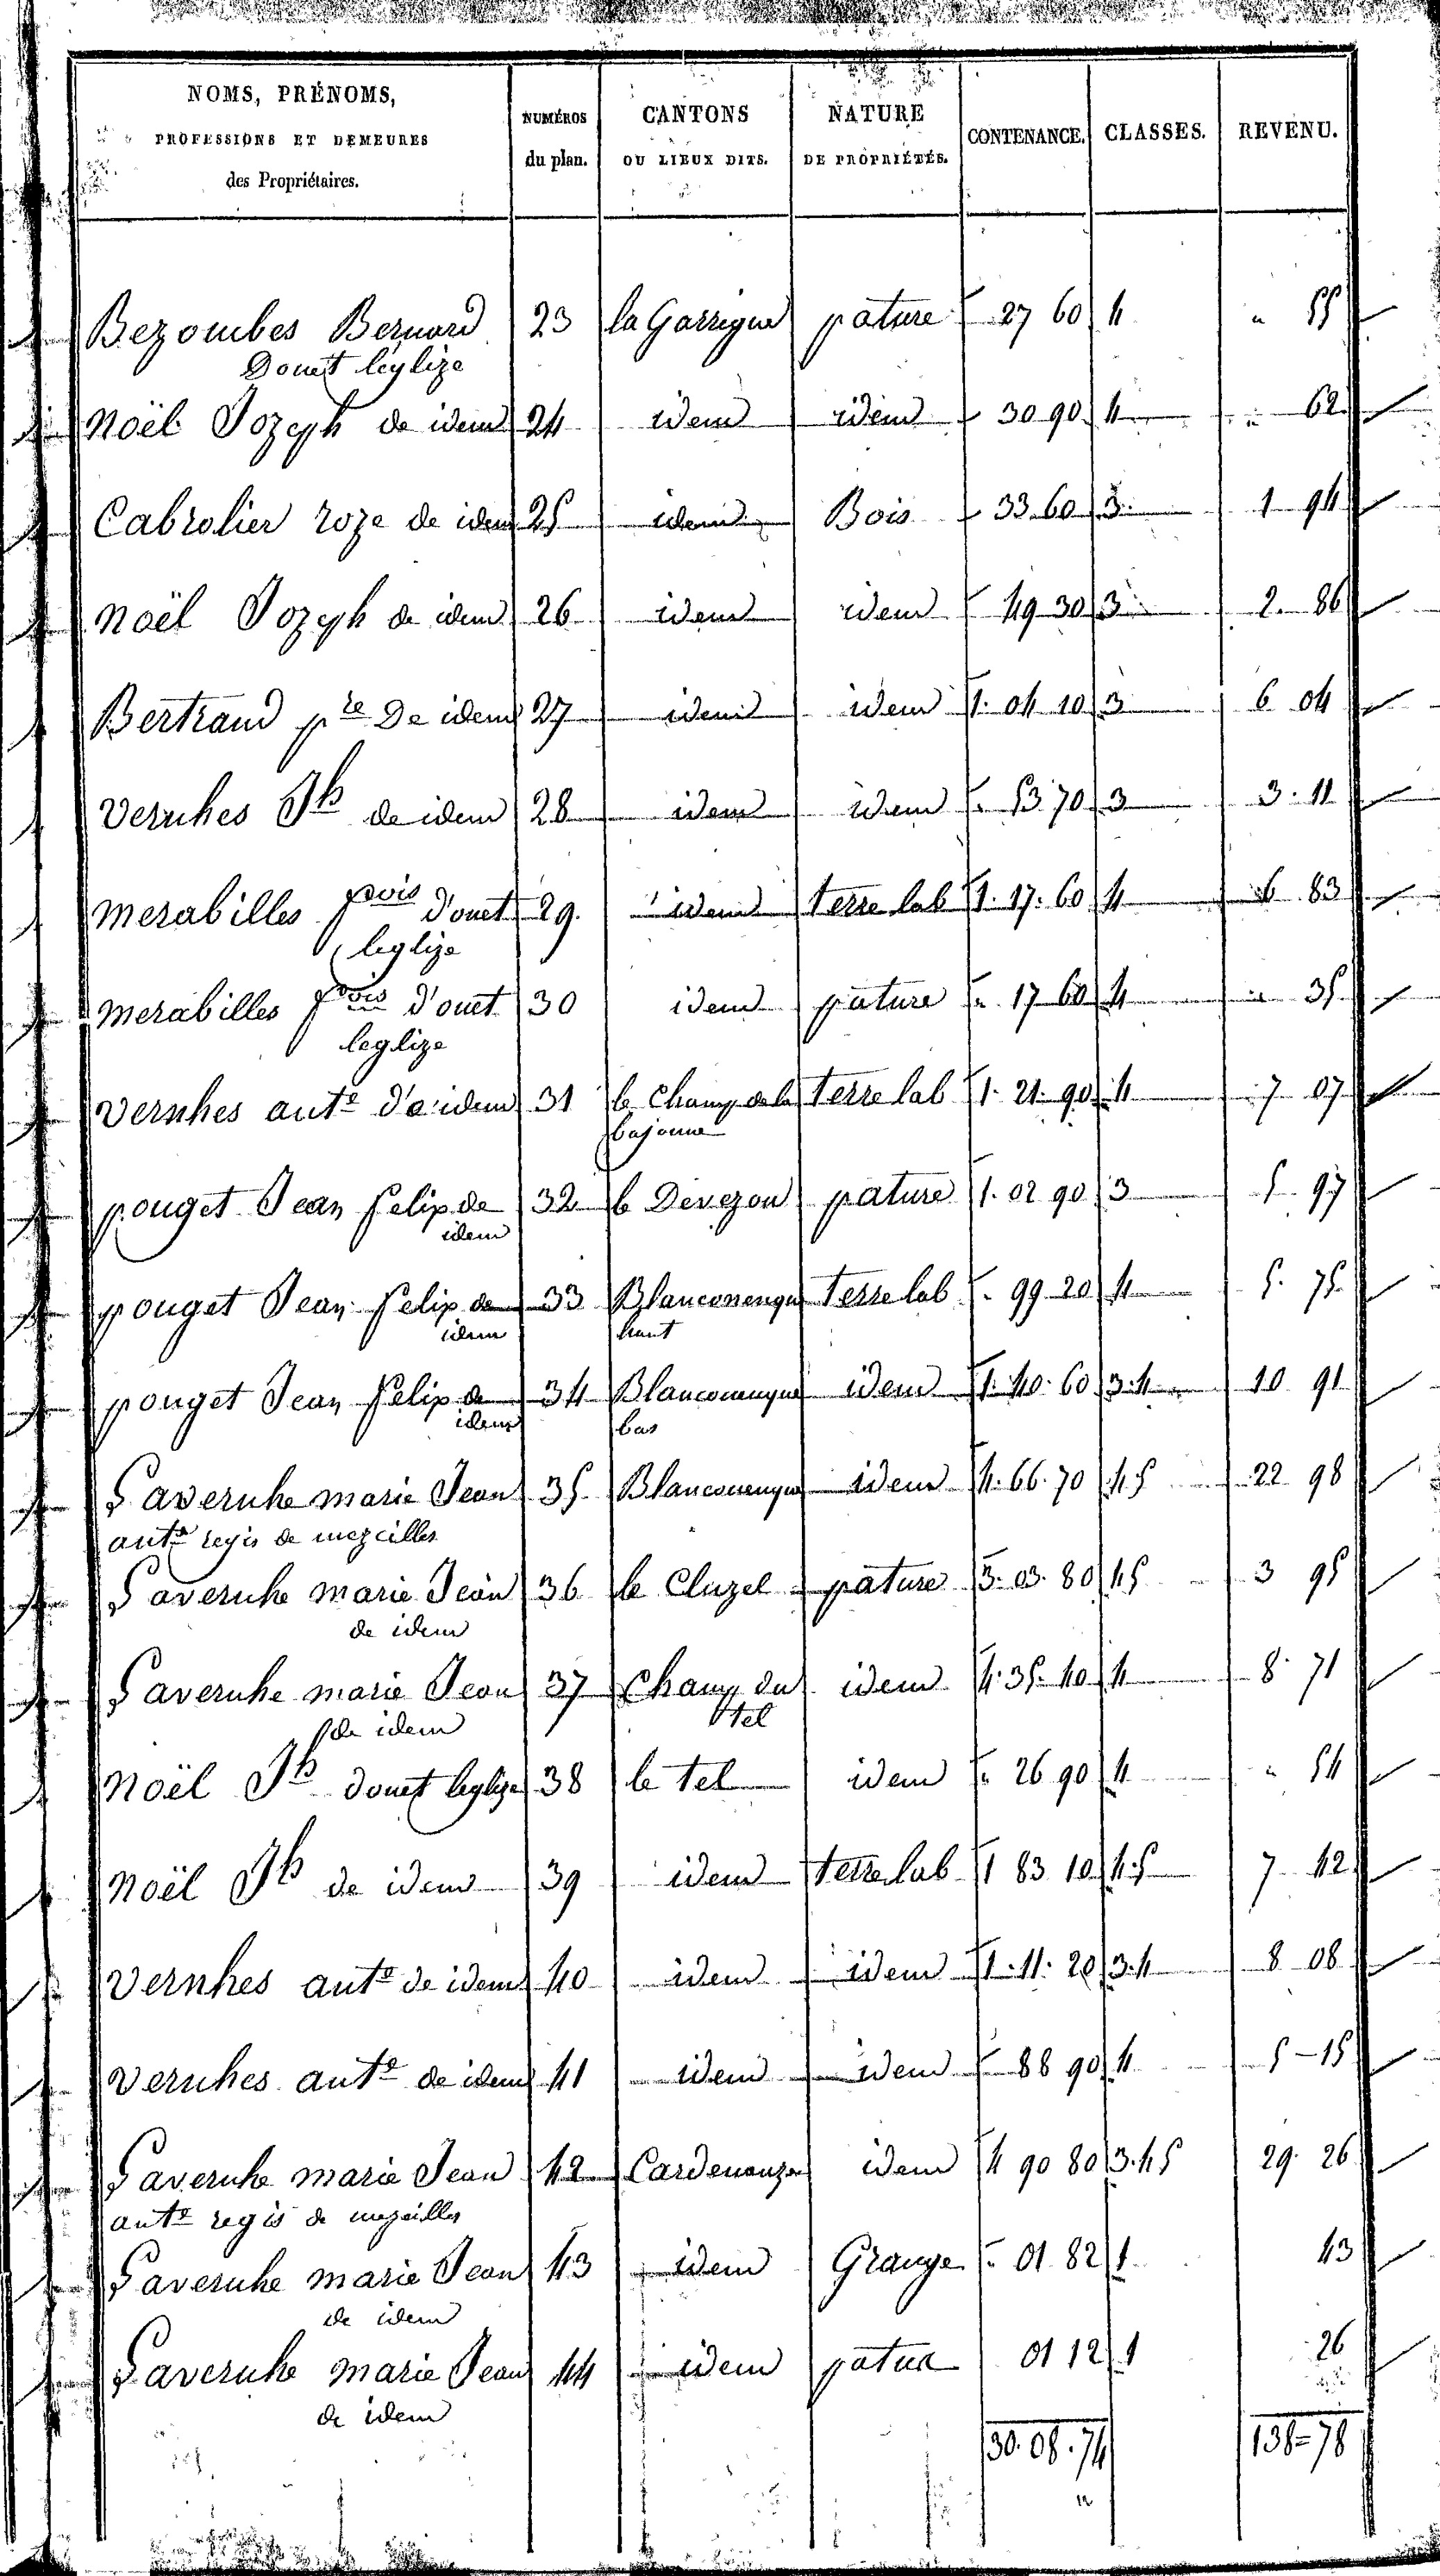 NOMS, PRÉNOMS, PROFESSIONS ET DEMEURES des Propriétaires. NUMÉROS du plan. CANTONS OU LIEUX DITS. NATURE DE PROPRIÉTÉS. CONTENANCE. CLASSES. REVENU.
Bezombes Bernard 23 la Garrigue pature 27 60 4 " 55
Douet léglize
Noël Jozeph de idem 24 idem idem 30 90 4 " 62
Cabrolier roze de idem 25 idem Bois 33 60 3 1 94
Noël Jozeph de idem 26 idem idem 49 30 3 2 86
Bertrand pre De idem 27 idem idem 1. 04 10 3 6 04
Vernhes Jh de idem 28 idem idem 53 70 3 3 11
Merabilles fois d'ouet 29 idem terre lab 1. 17. 60 4 6 83
leglize
Merabilles fois d'ouet 30 idem pature " 17 60 4 " 35
leglize
Vernhes ante de idem 31 le Champ de la terre lab 1. 21. 90 4 7 07
bajonne
pouget Jean felix de 32 le Devezou pature 1. 02 90 3 5 97
idem
pouget Jean felix de 33 terre lab 99 20 4 5. 75
idem haut
pouget Jean felix de 34 idem 1. 40. 60 3.4 10 91
idem bas
Savernhe marie Jean 35 idem 4. 66. 70 4.5 22 98
ante regis de mezeilles
Savernhe marie Jean 36 le Cluzel pature 3. 03. 80 4.5 3 95
de idem
Savernhe marie Jean 37 Champ du idem 4. 35. 40 4 8. 71
de idem tel
Noël Jh douet leglize 38 le tel idem " 26 90 4 " 54
Noël Jh de idem 39 idem terre lab 1 83 10 4.5 7 42
Vernhes ante de idem 40 idem idem 1. 11. 20 3.4 8 08
Vernhes ante de idem 41 idem idem 88 90 4 5 - 15
Savernhe marie Jean 42 idem 4 90 80 3.4 5 29. 26
ante regis de mezeilles
Savernhe marie Jean 43 idem Grange 01 82 1 43
de idem
Savernhe marie Jean 44 idem patus 01 12 1 26
de idem
30. 08. 74 138=78